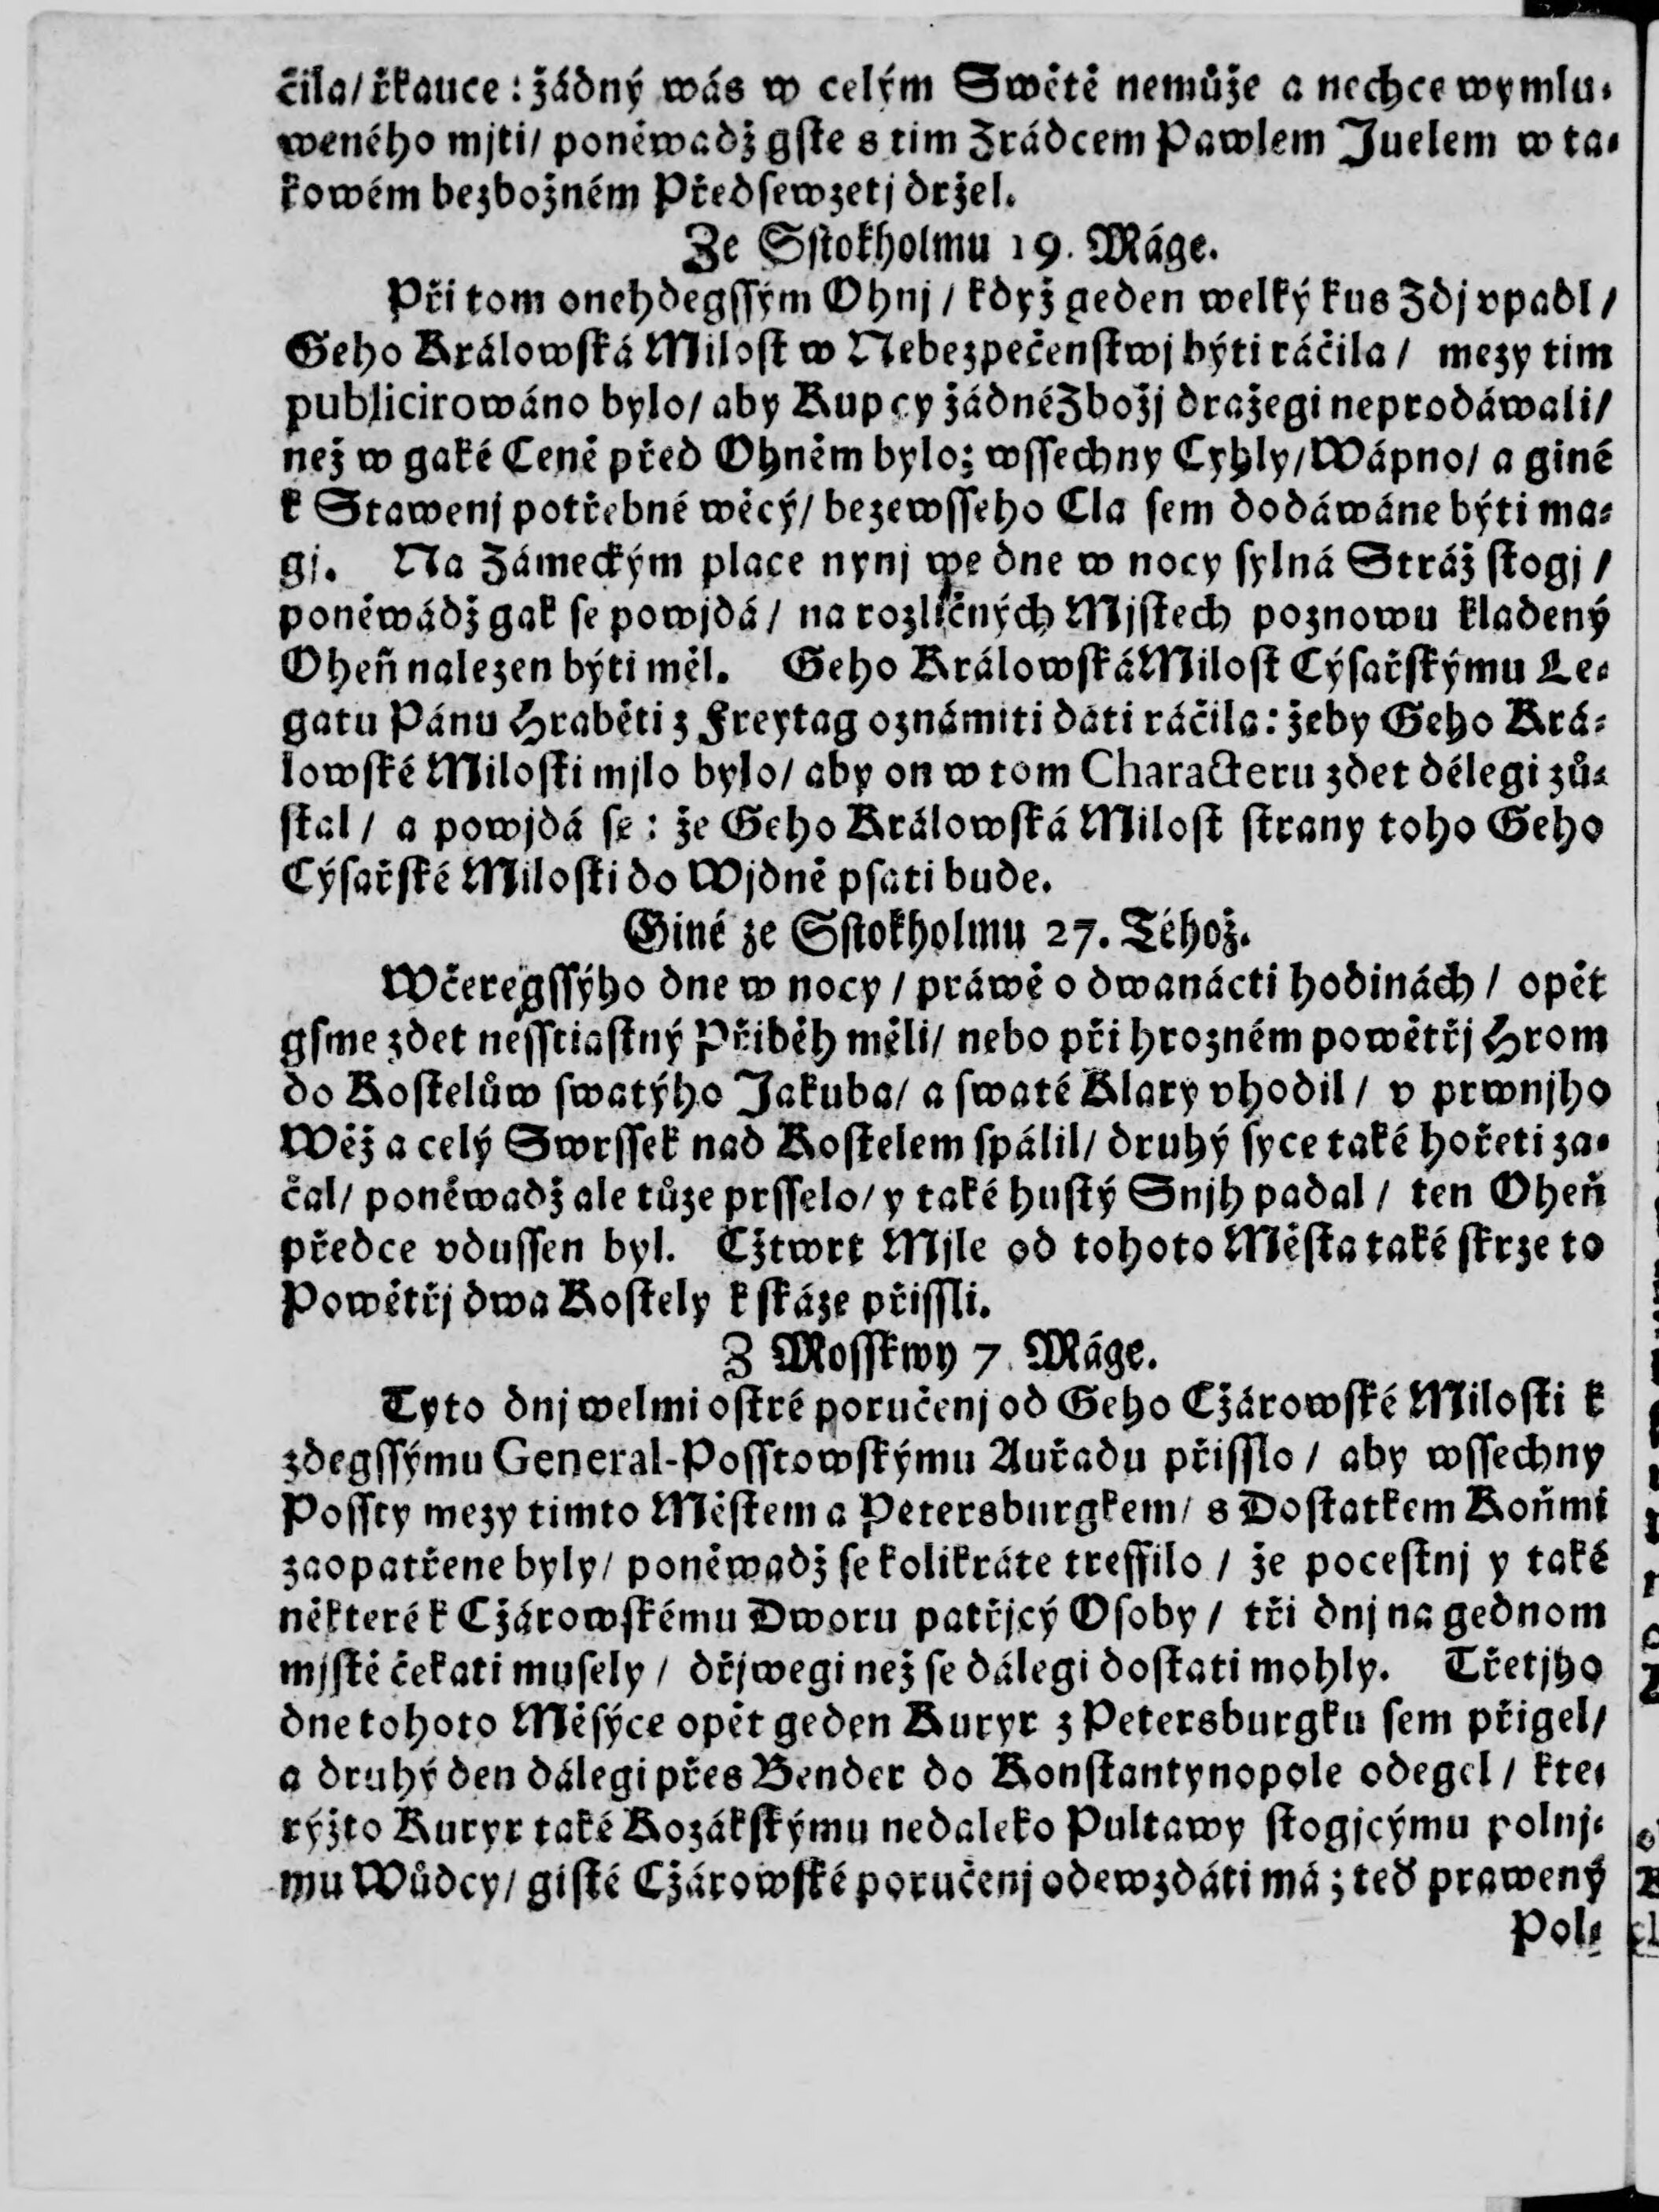 čila/ řkauce: žádný wás w celým Swětě nemůže a nechce wymlu-
weného mjti/ poněwadž gſte s tim Zrádcem Pawlem Juelem w ta-
kowém bezbožném Předſewzetj držel.
Ze Sſtokholmu 19. Máge.
Při tom onehdegſſým Ohnj / když geden welký kus Zdj vpadl /
Geho Králowſká Miloſt w Nebezpečenſtwj býti ráčila / mezy tim
publicirowáno bylo/ aby Kupcy žádné Zbožj dražegi neprodáwali/
než w gaké Ceně před Ohněm bylo; wſſechny Cyhly/ Wápno/ a giné
k Stawenj potřebné wěcý/ bezewſſeho Cla ſem dodáwáne býti ma-
gj. Na Zámeckým place nynj we dne w nocy ſylná Stráž ſtogj /
poněwádž gak ſe powjdá / na rozličných Mjſtech poznowu kladený
Oheň nalezen býti měl. Geho Králowſká Miloſt Cýſařſkýmu Le-
gatu Pánu Hraběti z Freytag oznámiti dáti ráčila: žeby Geho Krá-
lowſké Miloſti mjlo bylo/ aby on w tom Characteru zdet délegi zů-
ſtal / a powjdá ſe: že Geho Králowſká Miloſt ſtrany toho Geho
Cýſařſké Miloſti do Wjdně pſati bude.
Giné ze Sſtokholmu 27. Téhož.
Wčeregſſýho dne w nocy / práwě o dwanácti hodinách / opět
gſme zdet neſſtiaſtný Přiběh měli/ nebo při hrozném powětřj Hrom
do Koſtelůw ſwatýho Jakuba/ a ſwaté Klary vhodil / v prwnjho
Wěž a celý Swrſſek nad Koſtelem ſpálil/ druhý ſyce také hořeti za-
čal/ poněwadž ale tůze prſſelo/ y také huſtý Snjh padal / ten Oheň
předce vduſſen byl. Cžtwrt Mjle od tohoto Měſta také ſkrze to
Powětřj dwa Koſtely k ſkáze přiſſli.
Z Moſſkwy 7. Máge.
Tyto dnj welmi oſtré poručenj od Geho Cžárowſké Miloſti k
zdegſſýmu General-Poſſtowſkýmu Auřadu přiſſlo / aby wſſechny
Poſſty mezy timto Měſtem a Petersburgkem/ s Doſtatkem Koňmi
zaopatřene byly/ poněwadž ſe kolikráte treffilo / že poceſtnj y také
některé k Cžárowſkému Dworu patřjcý Oſoby / tři dnj na gednom
mjſtě čekati muſely / dřjwegi než ſe dálegi doſtati mohly. Třetjho
dne tohoto Měſýce opět geden Kuryr z Petersburgku ſem přigel/
a druhý den dálegi přes Bender do Konſtantynopole odegel / kte-
rýžto Kuryr také Kozákſkýmu nedaleko Pultawy ſtogjcýmu polnj-
mu Wůdcy/ giſté Cžárowſké poručenj odewzdáti má; teď prawený
Pol-